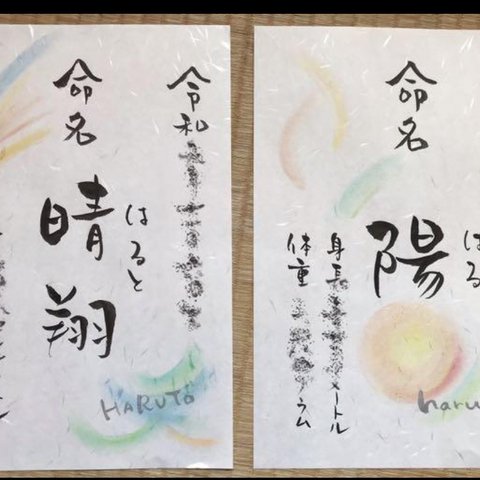 令和
命名
晴翔
はると
HARUTO
命名
陽
はる
身長 メートル
体重 グラム
haru